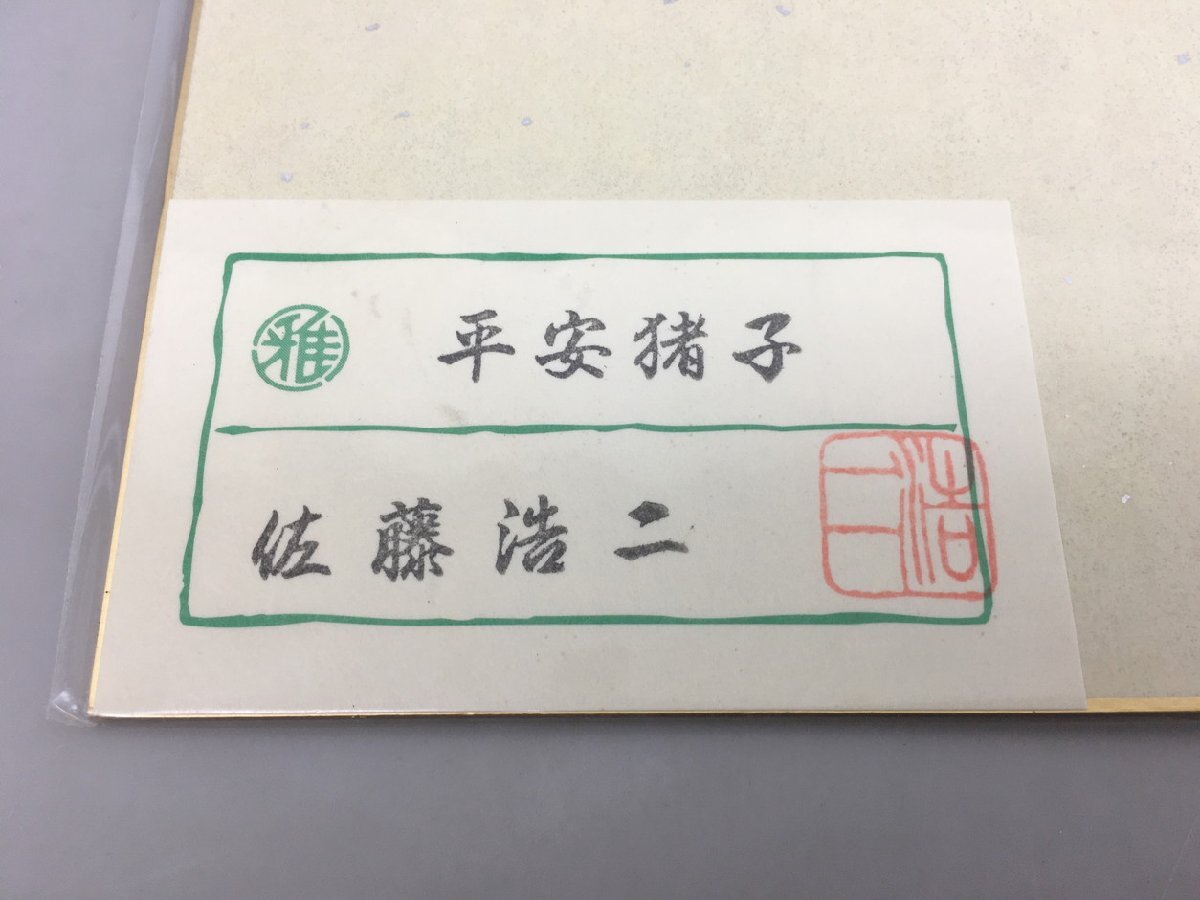 雅 平安猪子
佐藤浩二
浩二